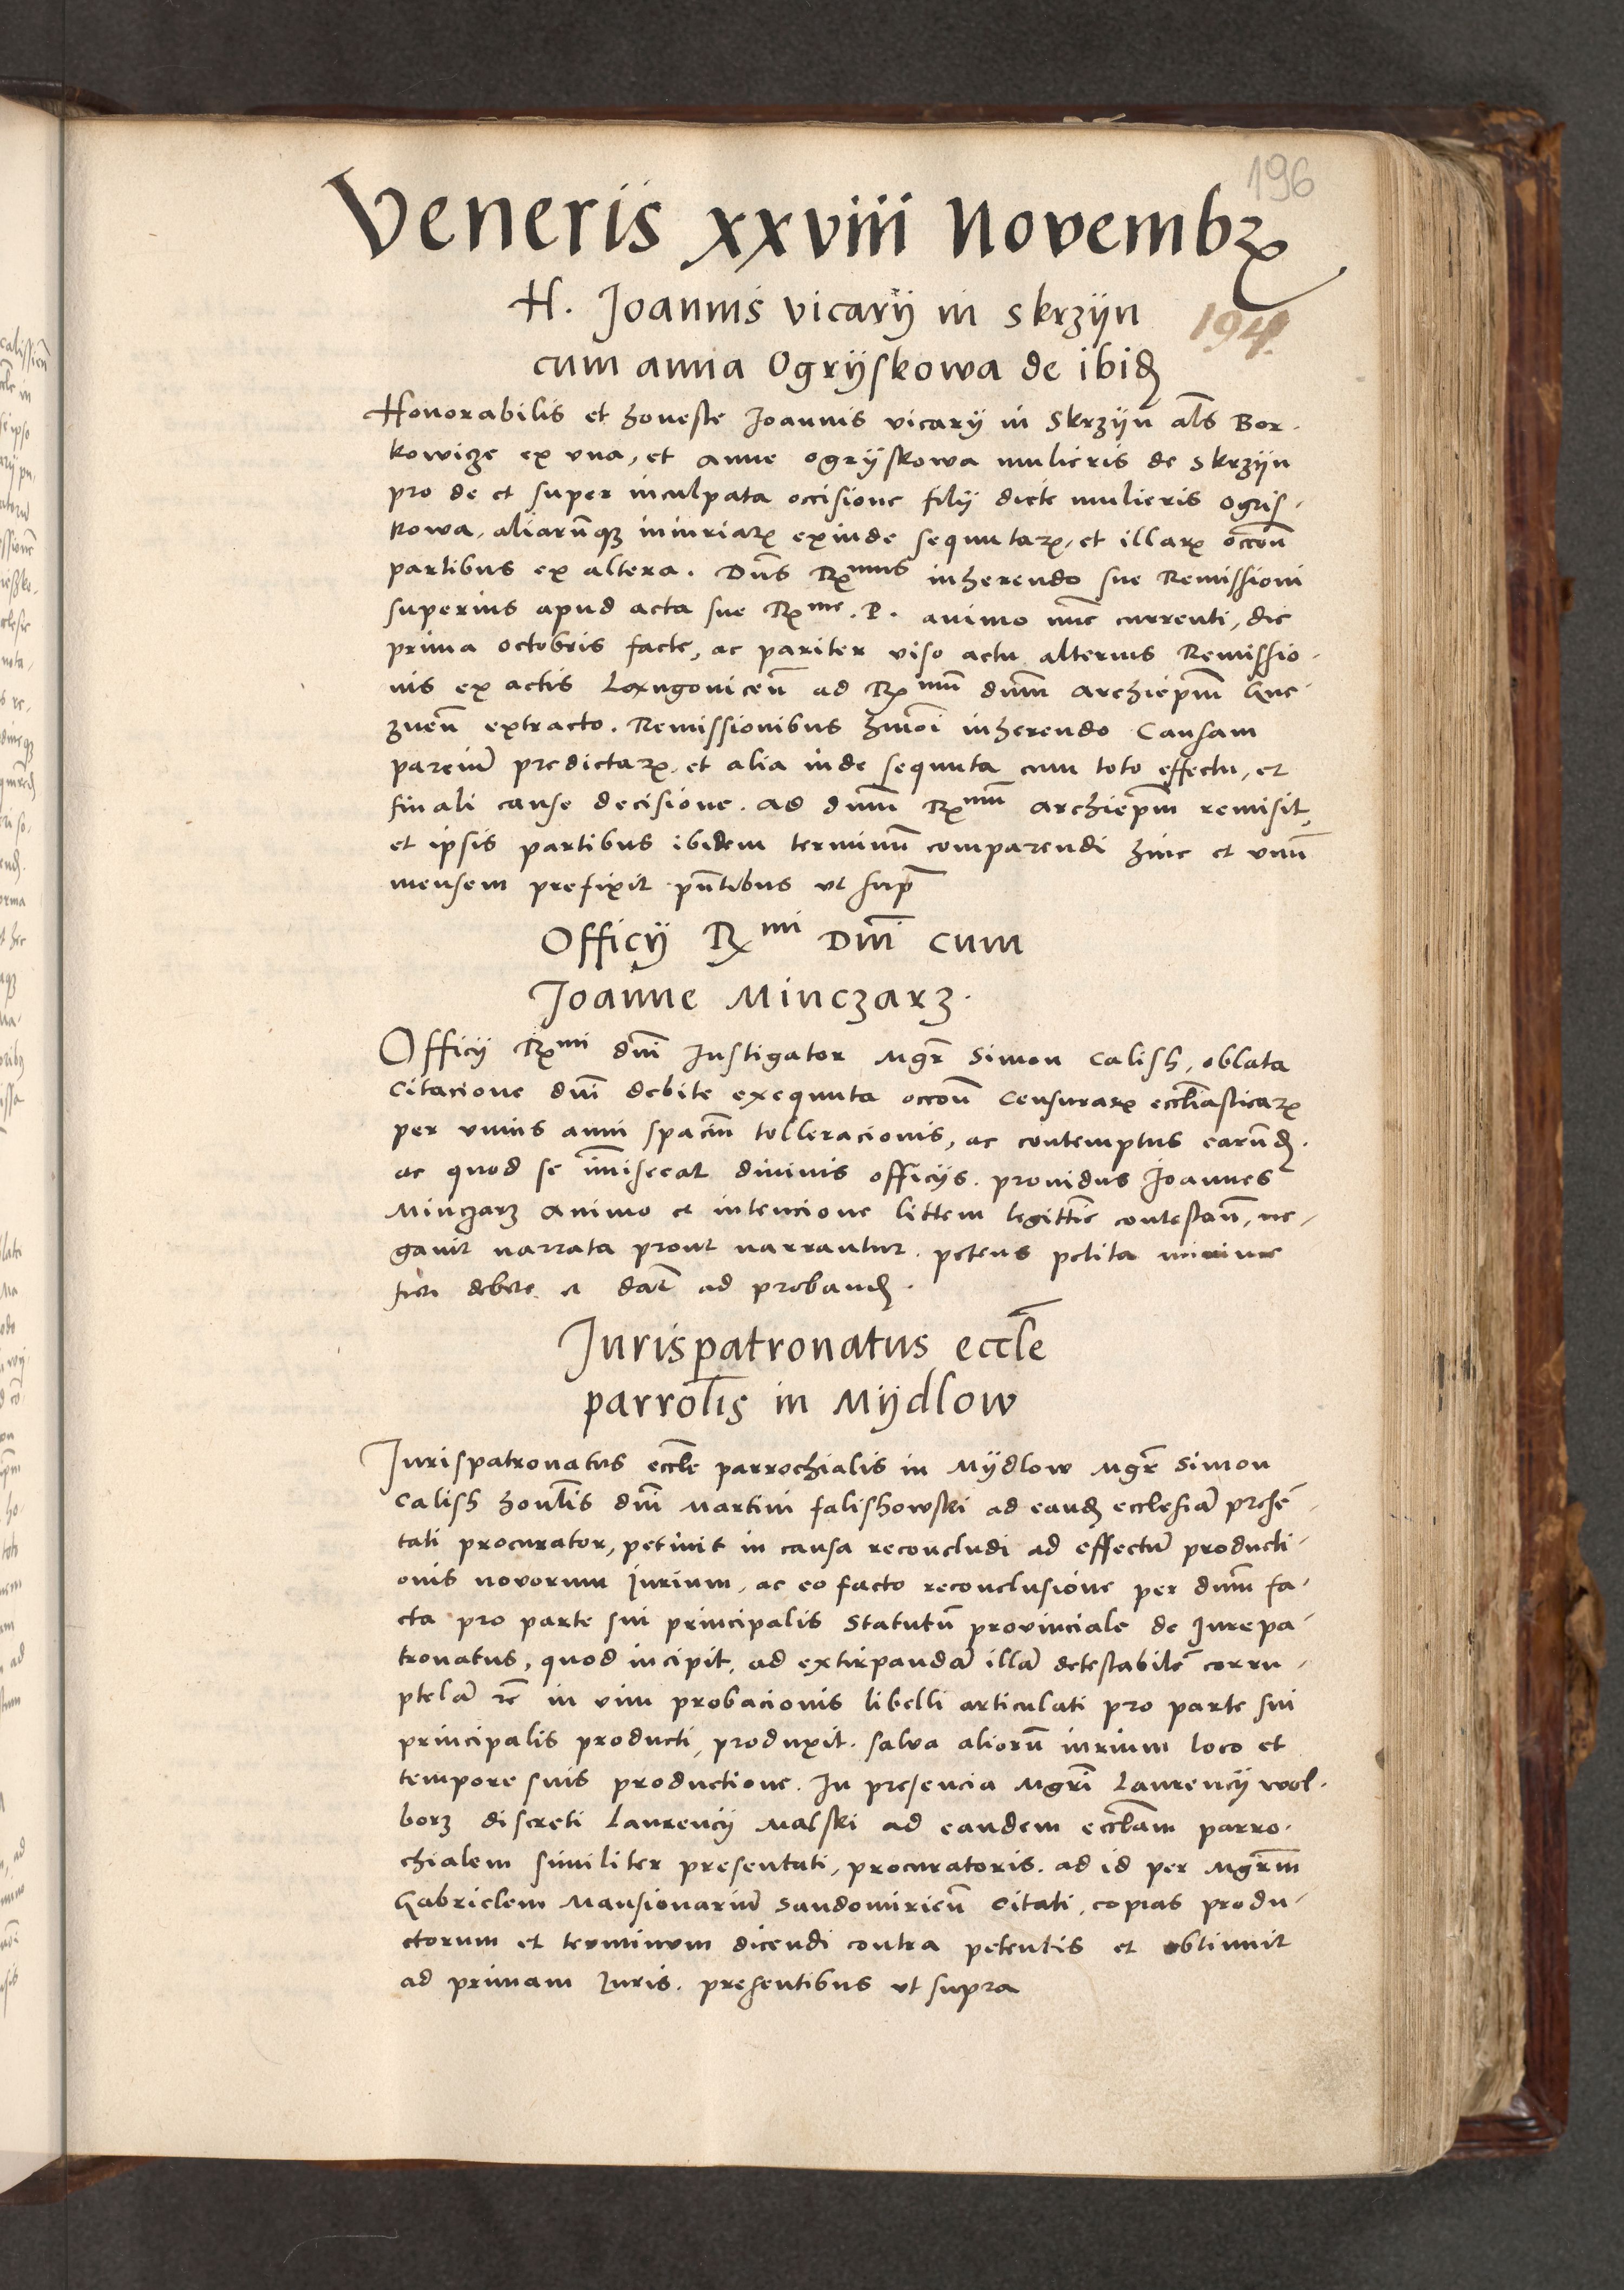 196
Veneris xxviii Novembꝝ
H. Joannis vicarÿ in Skrzÿn
194.
cum anna Ogrÿskowa de ibiꝺ
Honorabilis et honeste Joannis vicarÿ in Skrzÿn al̄s Bor-
kowicze ex vna, et anne ogrÿskowa mulieris de Skrzÿn
pro de et super inculpata occisione filÿ dicte mulieris Ogris-
kowa, aliarūqꝫ iniuriaꝝ exinde sequutaꝝ, et illaꝝ occōne
partibus ex altera. Dn̄s Rꝫmus inherendo sue Remissioni
superius apud acta sue Rꝫme. P. animo nūc currenti, die
prima octobris facte, ac pariter viso actu alterius Remissio-
nis ex actis Loxngonicen̄ ad Rꝫmū dnm̄ archiepm̄ Gne-
znen̄ extracto. Remissionibus hmōi inherendo Causam
parciūm predictaꝝ, et alia inde sequuta cum toto effectu, et
finali cause decisione. ad dnm̄ Rꝫmū archiepm̄ remisit,
et ipsis partibus ibidem terminū comparendi hinc et vnū
mensem prefixit pn̄tibus vt sup̄
Officÿ Rꝫmi Dnī cum
Joanne Minczarz.
Officÿ Rꝫmi dnī Instigator Mgr̄ Simon Calish, oblata
Citacione dnī debite exequuta occōne Censuraꝝ eccl̄iasticaꝝ
per vnius anni spaciū tolleracionis, ac contemptus earūꝺ.
ac quod se im̄isceat diuinis officÿs. prouidus Joannes
Minczarz animo et intencione littem legittīe contestan̄, ne-
gauit narrata prout narrantur. petens petita minime
fieri debere et dāt ad probanꝺ.
Jurispatronatus eccl̄e
parrol̄is in Mÿdlow
Jurispatronatus eccl̄e parrochialis in Mÿdlow Mgr̄ Simon
Calish honl̄is dnī Martini falishowski ad eanꝺ ecclesiā prese-
tati procurator, petiuit in causa reconcludi ad effectū producti-
onis novorum Jurium, ac eo facto reconclusione per dnm̄ fa-
cta pro parte sui principalis Statutū provinciale de Jurepa-
tronatus, quod incipit, ad extirpandā illā detestabilē corru-
ptelā rc̄ in vim probacionis libelli articulati pro parte sui
principalis producti, produxit. salva aliorū iurium loco et
tempore suis productione. In presencia Mgrī Laurencÿ wol-
borz discreti Laurencÿ Malski ad eandem eccl̄am parro-
chialem similiter presentati, procuratoris. ad id per Mgrm̄
Gabrielem Mansionariū Sandomiricen̄ citati, copias produ-
ctorum et terminum dicendi contra petentis et obtinuit
ad primam Juris. presentibus vt supra